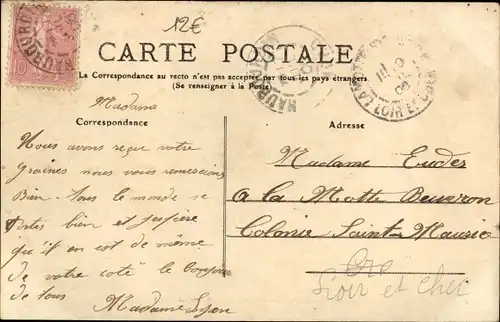 12€
CARTE POSTALE
La Correspondance au recto n'est pas acceptée par tous les pays étrangers
(Se renseigner à la Poste)
Madame
Correspondance
Adresse
Nous avons reçue votre
graines nous vous remercions
Bien. Tous le monde se
Portes bien et j'espère
qu'il en est de même
de votre coté le Bonjour
de tous
Madame
Madame Eudes
a la Motte Beuvron
Colonie Saint-Maurice
Loir et Cher